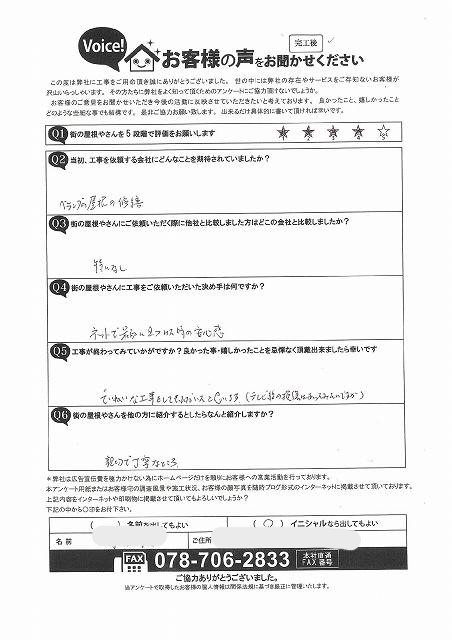 Voice!
完工後
お客様の声をお聞かせください
この度は弊社に工事をご用命頂き誠にありがとうございました。世の中には弊社の存在やサービスをご存知ないお客様が
沢山いらっしゃいます。その方たちに弊社をよく知って頂くためのアンケートにご協力頂けないでしょうか。
お客様のご意見をお聞かせいただき今後の活動に反映させていただきたいと考えております。良かったこと、嬉しかったこと
どのような些細な事でも結構です。是非お願い致します。出来るだけ具体的に書いて頂ければ幸いです。
Q1 街の屋根やさんを5段階で評価をお願いします
1 2 3 4 5
Q2 当初、工事を依頼する会社にどんなことを期待されていましたか?
ベランダの屋根の修繕
Q3 街の屋根やさんにご依頼いただく際に他社と比較しました方はどこの会社と比較しましたか?
特になし
Q4 街の屋根やさんに工事をご依頼いただいた決め手は何ですか?
ネットで最初に見つけた時の安心感
Q5 工事が終わってみていかがですか?良かった事・嬉しかったことを忌憚なく頂戴出来ましたら幸いです
ていねいな工事をしてもらったと思います。(テレビ線の損傷はあったみたいですが)
Q6 街の屋根やさんを他の方に紹介するとしたらなんと紹介しますか?
親切で丁寧なところ
*弊社は広告宣伝費を極力かけない為にホームページだけを頼りにお客様への営業活動を行っております。
本アンケート用紙またはお客様宅の調査風景や施工状況、お客様の顔写真を随時ブログ形式のインターネットに掲載させて頂いております。
上記内容をインターネットや印刷物に掲載させて頂いてもよろしいでしょうか?
下記の中から〇印をお付下さい。
( ) 名前を出してもよい ( 〇 ) イニシャルなら出してもよい
名前 ご住所
FAX 078-706-2833 本社直通 FAX番号
ご協力ありがとうございました。
当アンケートで取得したお客様の個人情報は関係法規に基づき厳正に管理いたします。